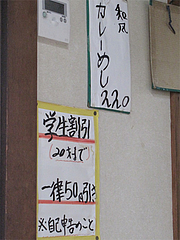 和風
カレーめし
220
学生割引
(20才まで)
一律50円引き
※自己申告のこと